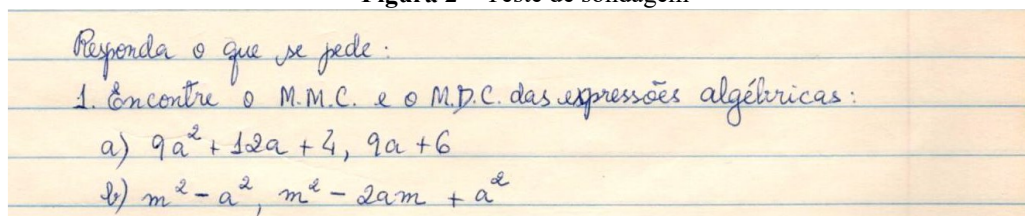 Figura 2 – Teste de sondagem
Responda o que se pede:
1. Encontre o M.M.C. e o M.D.C. das expressões algébricas:
a) 9a² + 12a + 4, 9a + 6
b) m² - a², m² - 2am + a²